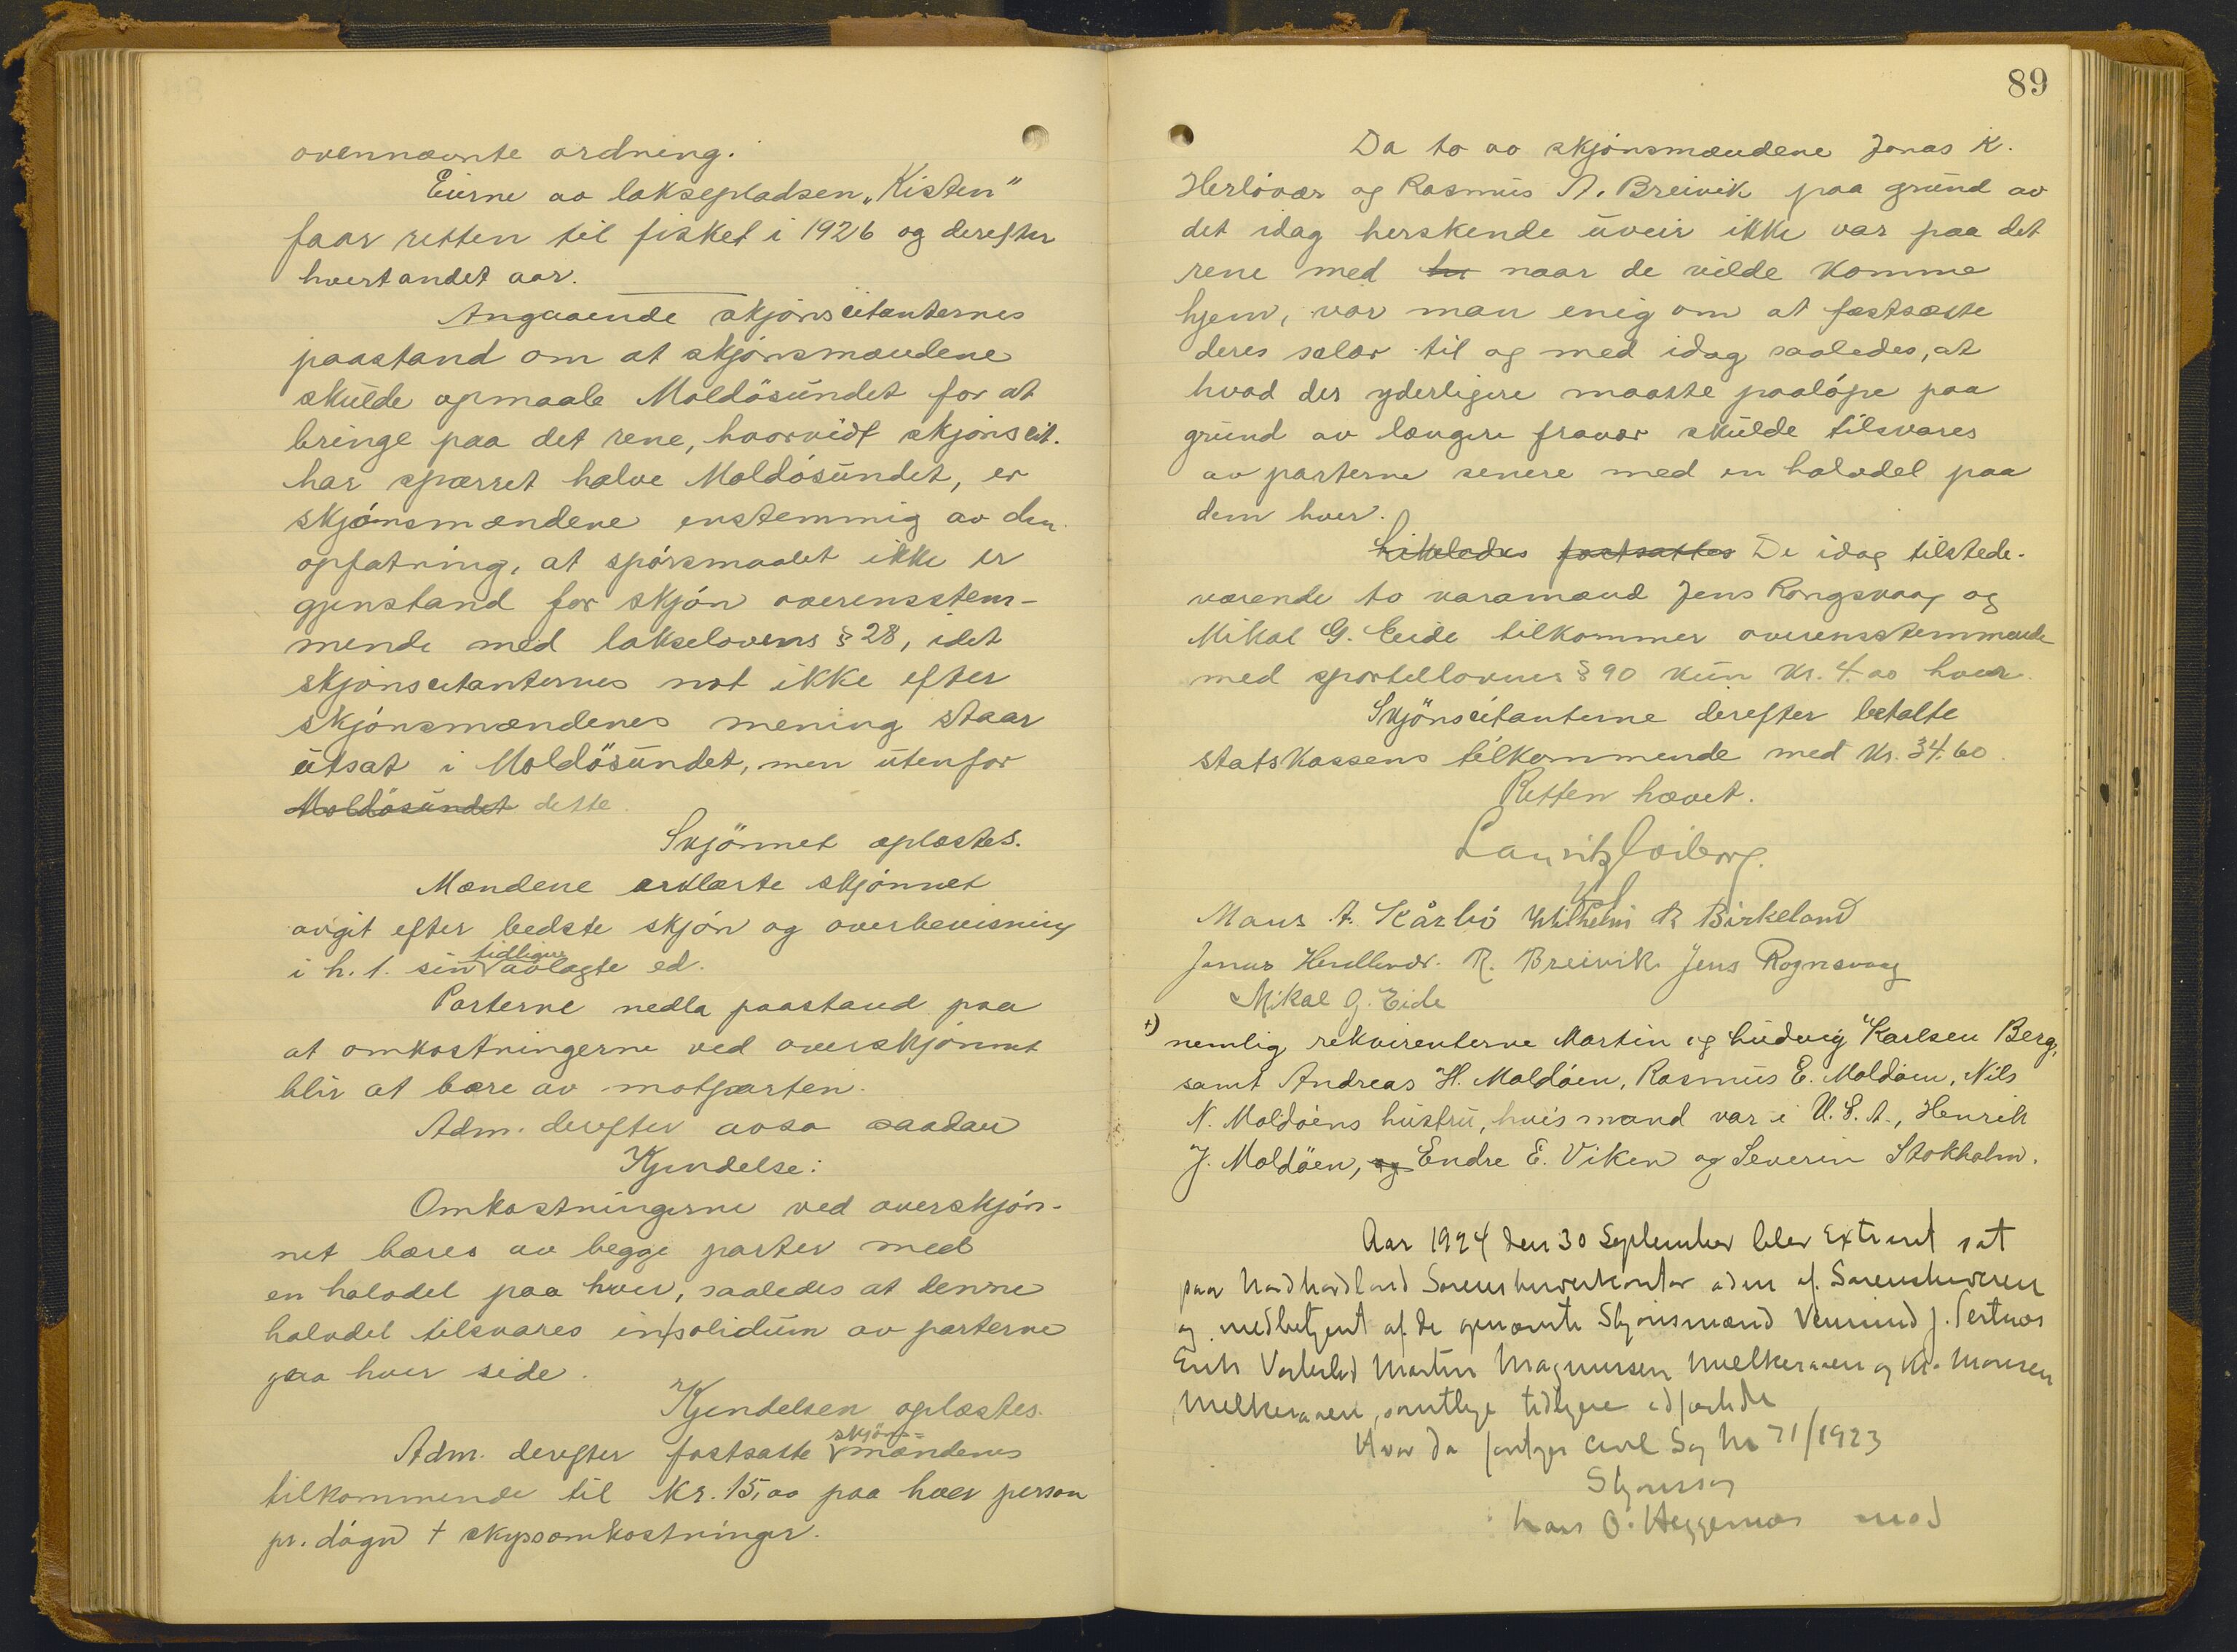 ovennævnte ordning.
Eierne av laksepladsen „Kisten"
faar retten til fisket i 1926 og derefter
hvert andet aar.
Angaaende skjønscitanternes
paastand om at skjønsmændene
skulde opmaale Moldösundet for at
bringe paa det rene, hvorvidt skjønscit.
har spærret halve Moldösundet, er
skjønsmændene enstemmig av den
opfatning, at spörsmaalet ikke er
gjenstand for skjön overensstem-
mende med lakselovens § 28, idet
skjønscitanternes not ikke efter
skjønsmændenes mening staar
utsat i Moldösundet, men utenfor
Moldösundet dette.
Skjönnet oplæstes.
Mændene erklærte skjönnet
avgit efter bedste skjön og overbevisning
i h. t. sin tidligere avlagte ed.
Parterne nedla paastand paa
at omkostningerne ved overskjönnet
blir at bære av motparten.
Adm. derefter avsa saadan
Kjendelse:
Omkostningerne ved overskjön-
net bæres av begge parter med
en halvdel paa hver, saaledes at denne
halvdel tilsvares in/solidum av parterne
paa hver side.
Kjendelsen oplæstes.
Adm. derefter fastsatte skjöns=mændenes
tilkommende til kr. 15,00 paa hver person
pr. dögn + skyssomkostninger.
89
Da to av skjönsmændene Jonas K.
Herlövær og Rasmus A. Breivik paa grund av
det idag herskende uveir ikke var paa det
rene med naar de vilde komme
hjem, var man enig om at fastsætte
deres salær til og med idag saaledes, at
hvad der yderligere maatte paalöpe paa
grund av længere fravær skulde tilsvares
av parterne senere med en halvdel paa
dem hver.
Likeledes fastsattes De idag tilstede-
værende to varamænd Jens Rongsvaag og
Mikal G. Eide tilkommer overensstemmende
med sportellovens § 90 kun kr. 4.00 hver.
Skjönscitanterne derefter betalte
statskassens tilkommende med kr. 34.60.
Retten hævet.
Mons A. Kårbö Wilhelm R Birkeland
Jonas R. Breivik Jens Rognsvaag
Mikal G. Eide
+) nemlig rekvirenterne Martin og Ludvig Karlsen Berg,
samt Andreas H. Moldöen, Rasmus E. Moldöen, Nils
N. Moldöens hustru, hvis mand var i U.S.A., Henrik
J. Moldöen, og Endre E. Viken og Severin Stokholm.
Aar 1924 den 30 September blev Extraret sat
paa Nordhordland Sorenskriverkontor adm af Sorenskriveren
og medbetjent af de opnævnte Skjønsmænd J.
Erik Martin Magnussen og Kr. Monsen
samtlige tidligere
Hvor da foretoges Civil Sag No 71/1923
Skjønssag
Hans O. mod